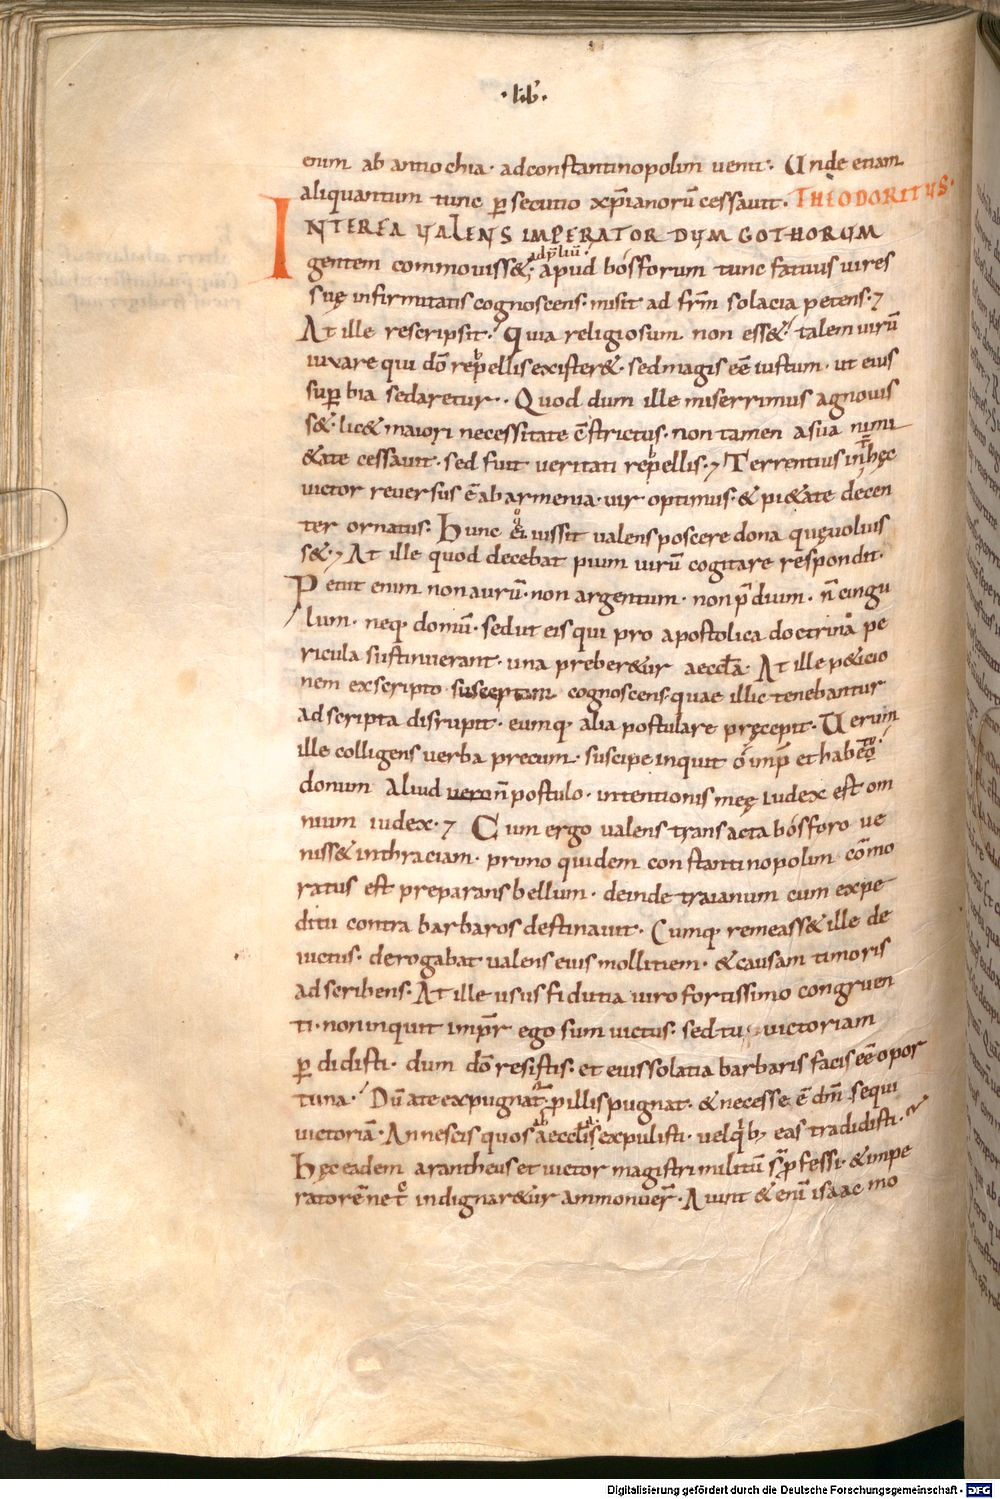 · lib̄ ·
enim ab antiochia · ad constantinopolim venit · Unde etiam
aliquantum tunc ꝑsecutio xp̄ianorū cessavit · THEODORITUS ·
INTEREA VALENS IMPERATOR DUM GOTHORUM
adp̄liū
gentem commovisset · apud bósforum tunc fatuus vires
suę infirmitatis cognoscens · misit ad fr̄m solacia petens · ⁊
At ille rescripsit · Quia religiosum non esset · talem virū
iuvare qui dō rebellis existeret · sed magis eē iustum · ut eius
suꝑbia sedaretur · Quod dum ille miserrimus agnovis
set · licet maiori necessitate c̄strictus · non tamen a sua nimi
etate cessavit · sed fuit veritati rebellis · ⁊ Terrentius inter hęc
victor reversus ē ab armenia · vir optimus · & pietate decen
ter ornatus · Hunc ergo iussit valens poscere dona quę voluis
set · ⁊ At ille quod decebat pium virū cogitare respondit ·
Petiit enim non aurū · non argentum · non p̄dium · n̄ cingu
lum · neq; domū · sed ut eis qui pro apostolica doctrina pe
ricula sustinuerant · una preberetur aeccl̄a · At ille peticio
nem ex scripto susceptam cognoscens · quae illic tenebantur
adscripta disrupit · eumq; alia postulare pręcepit · Verum
ille colligens verba precum · suscipe inquit ó imp̄ et habeto
donum Aliud vero n̄ postulo · intentionis meę iudex est om
nium iudex · ⁊ Cum ergo valens transacta bósforo ve
nisset in thraciam · primo quidem constantinopolim cōmo
ratus est preparans bellum · deinde traianum cum expe
ditu contra barbaros destinavit · Cumq; remeasset ille de
victus · derogabat valens eius mollitiem · & causam timoris
adscribens · At ille usus fidutia viro fortissimo congruen
ti · non inquit imp̄r ego sum victus · sed tu victoriam
ꝑdidisti · dum dō resistis · et eius solatia barbaris facis eē opor
tuna · Dū a te expugnat̄ · p illis pugnat · & necesse ē dn̄m sequi
victoriā · An nescis quos ab aeccl̄is expulisti · vel qb; eas tradidisti ·
Hęc eadem arantheus et victor magistri militū s̄ p̄fessi · & impe
ratorē ne indignaretur ammonuer̄ · Aiunt & enī isaac mo